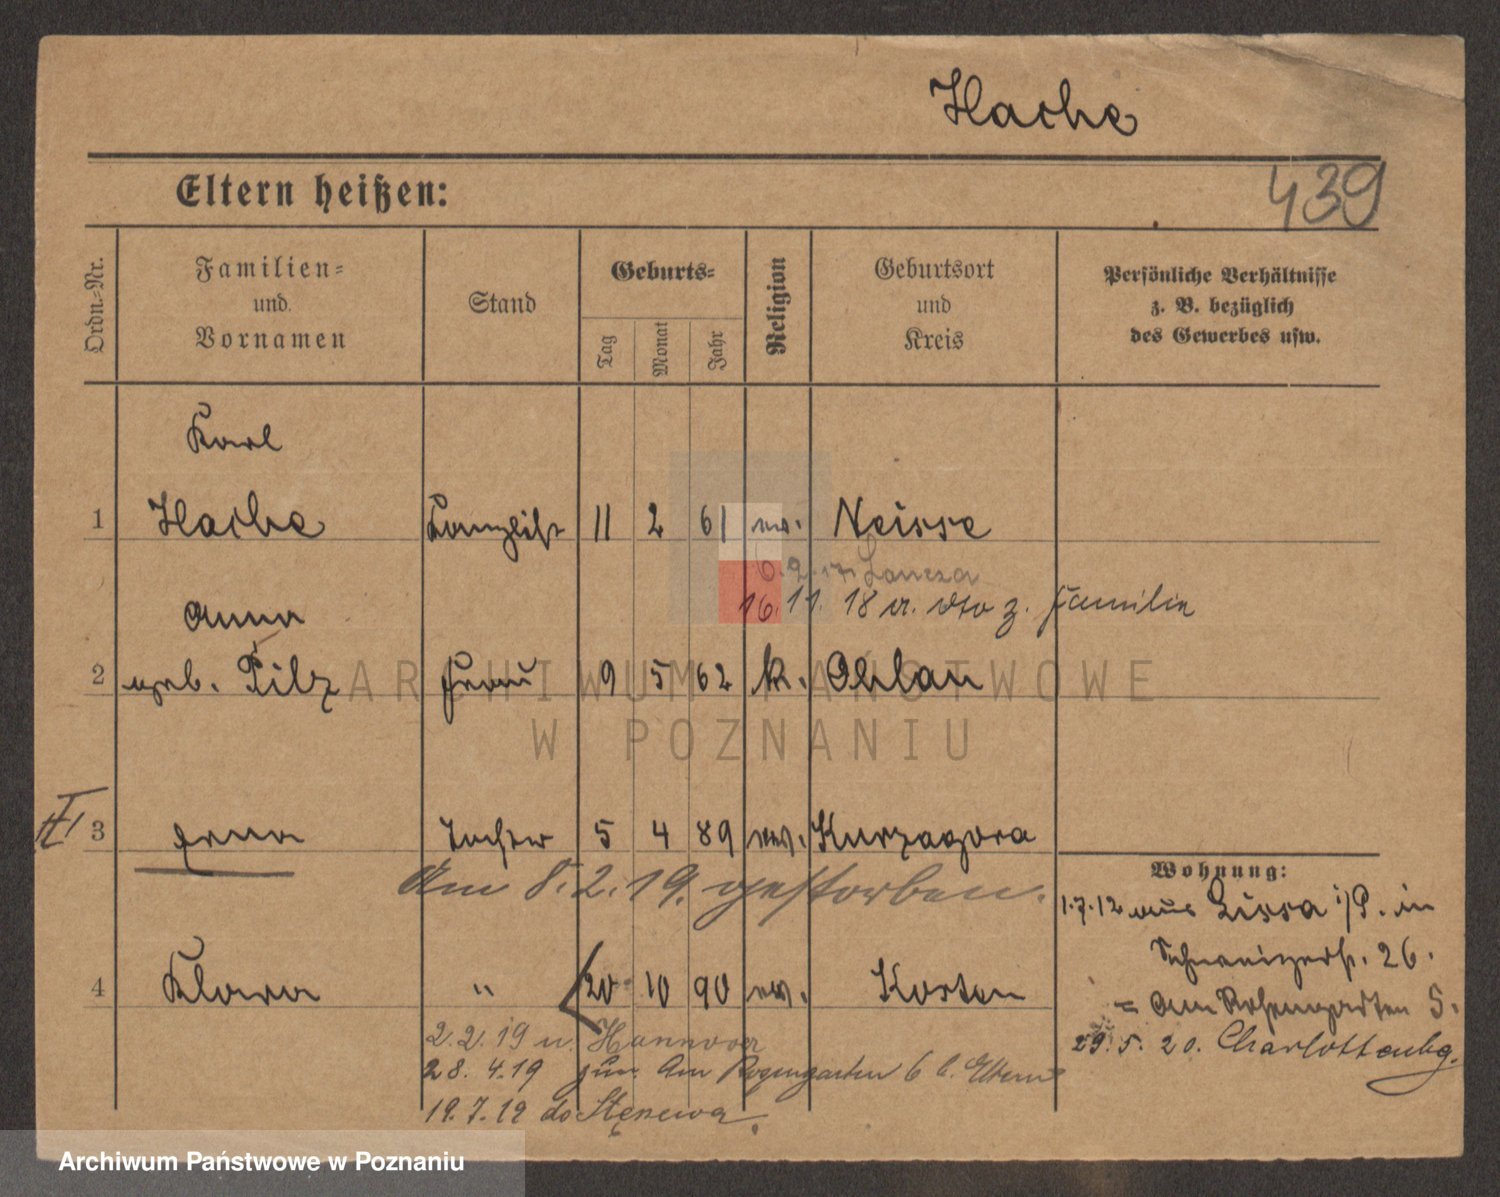 Hache
Eltern heißen:
439
Ordn.-Nr.
Familien-
und
Vornamen
Stand
Geburts-
Tag
Monat
Jahr
Religion
Geburtsort
und
Kreis
Persönliche Verhältnisse
z. B. bezüglich
des Gewerbes usw.
Karl
1 Hache Kanzlist 11 2 61 ev. Neisse
6.2.17
16.11.18 v. dto z. Familie
Anna
2 geb. Pilz Frau 9 5 62 k. Ohlau
ARCHIWUM PAŃSTWOWE
W POZNANIU
3 Erna Tochter 5 4 89 ev. Kurzagora
Am 8.2.19. gestorben.
Wohnung:
1.7.12 aus Lissa i/P. in
Schweizerstr. 26.
4 Klara " 20 10 90 ev. Kosten
= Am Rosengarten 5.
2.2.19 n. Hannover
29.5.20. Charlottenbg.
28.4.19 zur. Am Rosengarten 6 b. Eltern
19.7.19 do Stęszewa.
Archiwum Państwowe w Poznaniu